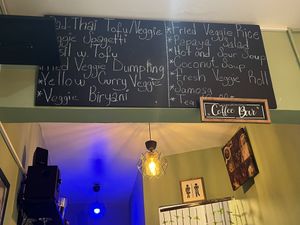 Pad-Thai Tofu/Veggie
Veggie Spagetti
w/ Tofu
Fried Veggie Dumpling
*Yellow Curry Veggie
*Veggie Biryani
*Fried Veggie Rice
*Papaya Salad
*Hot and Sour Soup
*Coconut Soup
*Fresh Veggie Roll
*Samosa
*Tea
Coffee Bar